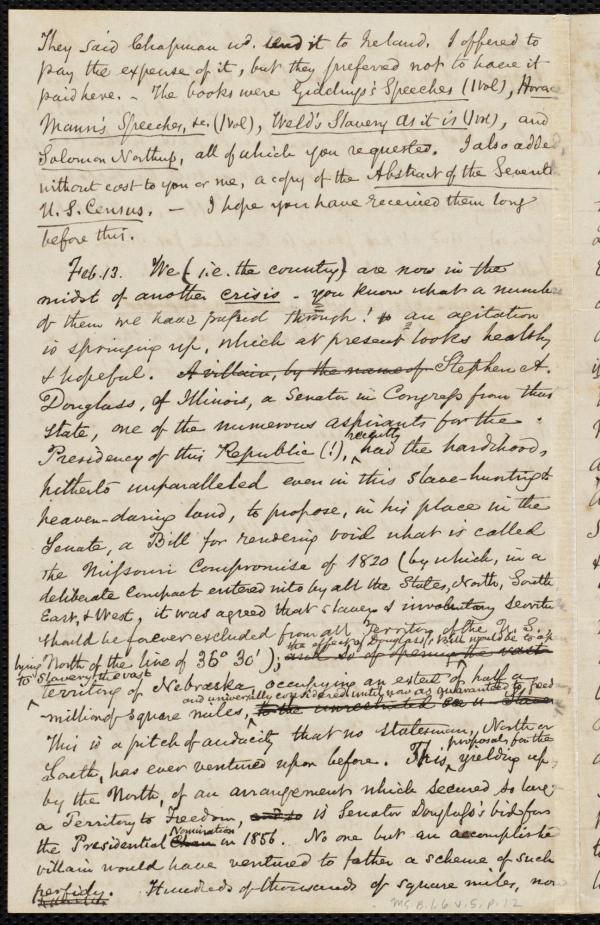 They said Chapman wd. send it to Ireland. I offered to
pay the expense of it, but they preferred not to have it
paid here. – The books were Giddings's Speeches (1 vol), Horace
Mann's Speeches, &c. (1 vol), Weld's Slavery as it is (1 vol), and
Solomon Northup, all of which you requested. I also added,
without cost to you or me, a copy of the Abstract of the Seventh
U.S. Census. – I hope you have received them long
before this.
Feb. 13. We (i.e. the country) are now in the
midst of another crisis – you know what a number
of them we have passed through! & an agitation
is springing up, which at present looks healthy
& hopeful. A villain, by the name of Stephen A.
Douglass, of Illinois, a Senator in Congress from that
State, one of the numerous aspirants for the
Presidency of this Republic (!), recently had the hardihood,
hitherto unparalleled even in this slave-hunting &
heaven-daring land, to propose, in his place in the
Senate, a Bill for rendering void what is called
the Missouri Compromise of 1820 (by which, in a
deliberate compact entered into by all the States, North, South
East, & West, it was agreed that slavery & involuntary servitu
should be forever excluded from all Territory of the U.S.
lying North of the line of 36° 30'); the effect of Douglass's Bill would be to op
to Slavery the vast
territory of Nebraska occupying an extent of half a
million of square miles, and universally considered until now as guaranteed to free
This is a pitch of audacity that no statesman, North or
South, has ever ventured upon before. This proposals for the yielding up,
by the North, of an arrangement which secured so large
a Territory to Freedom, and so is Senator Douglass's bid for
the Presidential Nomination in 1856. No one but an accomplishe
villain would have ventured to father a scheme of such
perfidy. Hundreds of thousands of square miles, now
MS. B.1.6 v.5, p.12